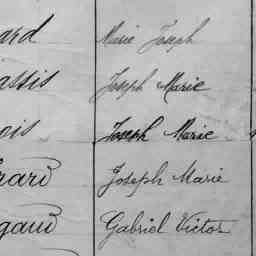 ard Marie Joseph
assis Joseph Marie
ois Joseph Marie
rard Joseph Marie
gaud Gabriel Victor